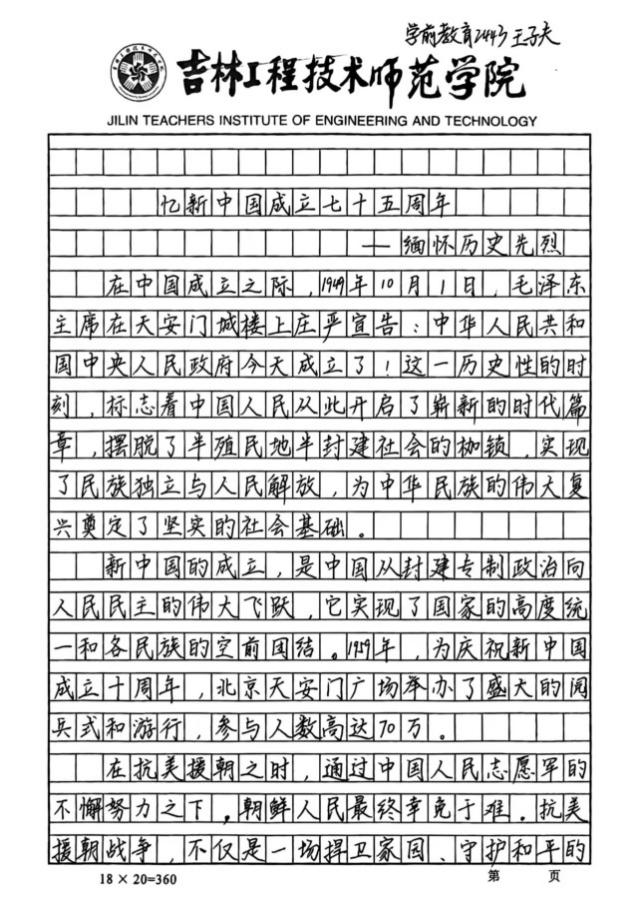 学前教育2443 王子夫
吉林工程技术师范学院
JILIN TEACHERS INSTITUTE OF ENGINEERING AND TECHNOLOGY
忆新中国成立七十五周年
——缅怀历史先烈
在中国成立之际，1949年10月1日，毛泽东
主席在天安门城楼上庄严宣告：中华人民共和
国中央人民政府今天成立了！这一历史性的时
刻，标志着中国人民从此开启了崭新的时代篇
章，摆脱了半殖民地半封建社会的枷锁，实现
了民族独立与人民解放，为中华民族的伟大复
兴奠定了坚实的社会基础。
新中国的成立，是中国从封建专制政治向
人民民主的伟大飞跃，它实现了国家的高度统
一和各民族的空前团结。1959年，为庆祝新中国
成立十周年，北京天安门广场举办了盛大的阅
兵式和游行，参与人数高达70万。
在抗美援朝之时，通过中国人民志愿军的
不懈努力之下，朝鲜人民最终幸免于难。抗美
援朝战争，不仅是一场捍卫家国、守护和平的
18×20=360 第 页